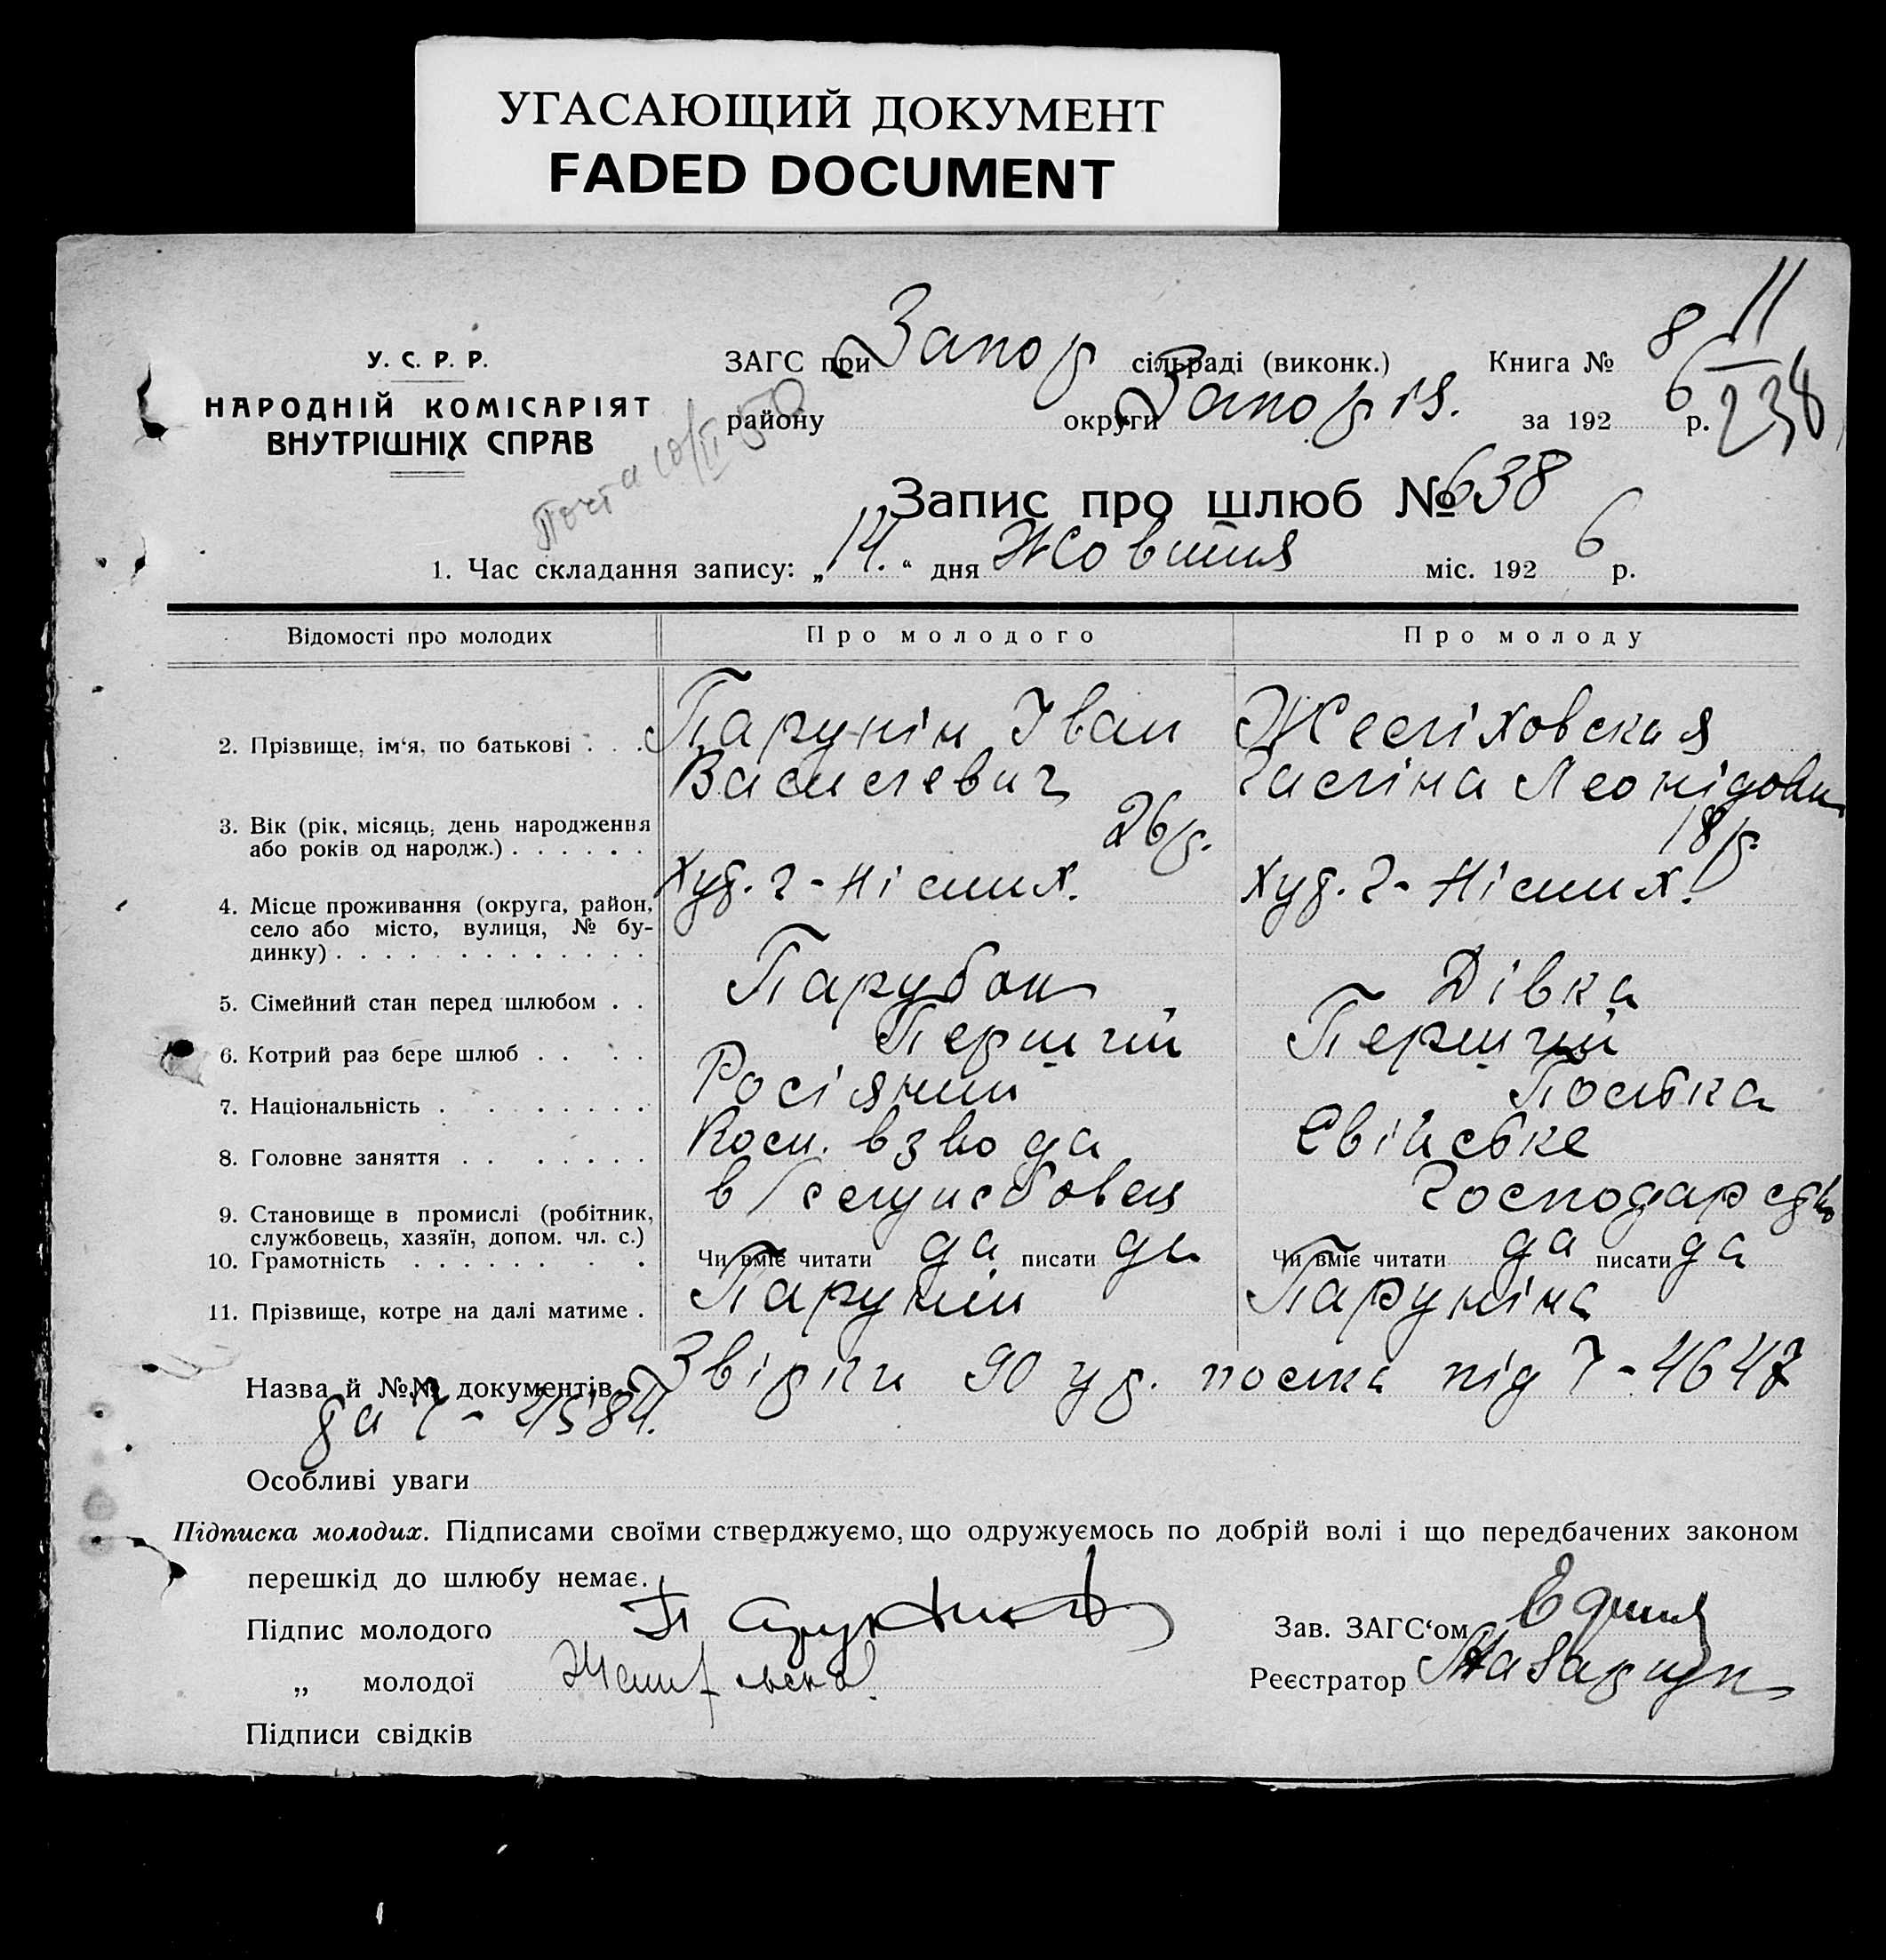 УГАСАЮЩИЙ ДОКУМЕНТ
FADED DOCUMENT
11
238
У. С. Р. Р.
НАРОДНІЙ КОМІСАРІЯТ
ВНУТРІШНІХ СПРАВ
Почта 10/II 50
ЗАГС при Запор сільраді (виконк.) Книга № 8
району округи Запоріз. за 1926 р.
Запис про шлюб № 638
1. Час складання запису: „14.“ дня Жовтня міс. 1926 р.
Відомості про молодих Про молодого Про молоду
2. Прізвище, ім‘я, по батькові . . . Парунін Іван Желіховская
Василевич Галіна Леонідовн
3. Вік (рік, місяць, день народження
або років од народж.) . . . . . . 26 р. 18 р.
4. Місце проживання (округа, район,
село або місто, вулиця, № бу-
динку) . . . . . . . . . . . . . Худ. 2-
Худ. 2-
5. Сімейний стан перед шлюбом . . Парубок Дівка
6. Котрий раз бере шлюб . . . . Перший Перший
7. Національність . . . . . . . Росіянин Полька
8. Головне заняття . . . . . . . взвода Свійське
9. Становище в промислі (робітник,
службовець, хазяїн, допом. чл. с.) в/служебовец Господарство
10. Грамотність . . . . . . . . Чи вміє читати да писати да Чи вміє читати да писати да
11. Прізвище, котре на далі матиме . Парунін Паруніна
Назва й №№ документів Звірки 90 полка під 7-4647
да 7-4584.
Особливі уваги
Підписка молодих. Підписами своїми стверджуємо, що одружуємось по добрій волі і що передбачених законом
перешкід до шлюбу немає.
Підпис молодого
Зав. ЗАГС‘ом
„ молодої
Реєстратор
Підписи свідків